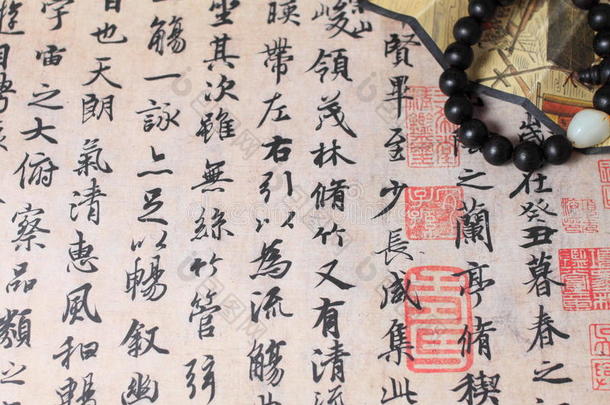 在癸丑暮春之
之蘭亭脩稧
賢畢至少長咸集此
峻領茂林脩竹又有清流
暎帶左右引以為流觴
坐其次雖無絲竹管弦
一觴一詠亦足以暢敘幽
日也天朗氣清惠風和暢
宇宙之大俯察品類之